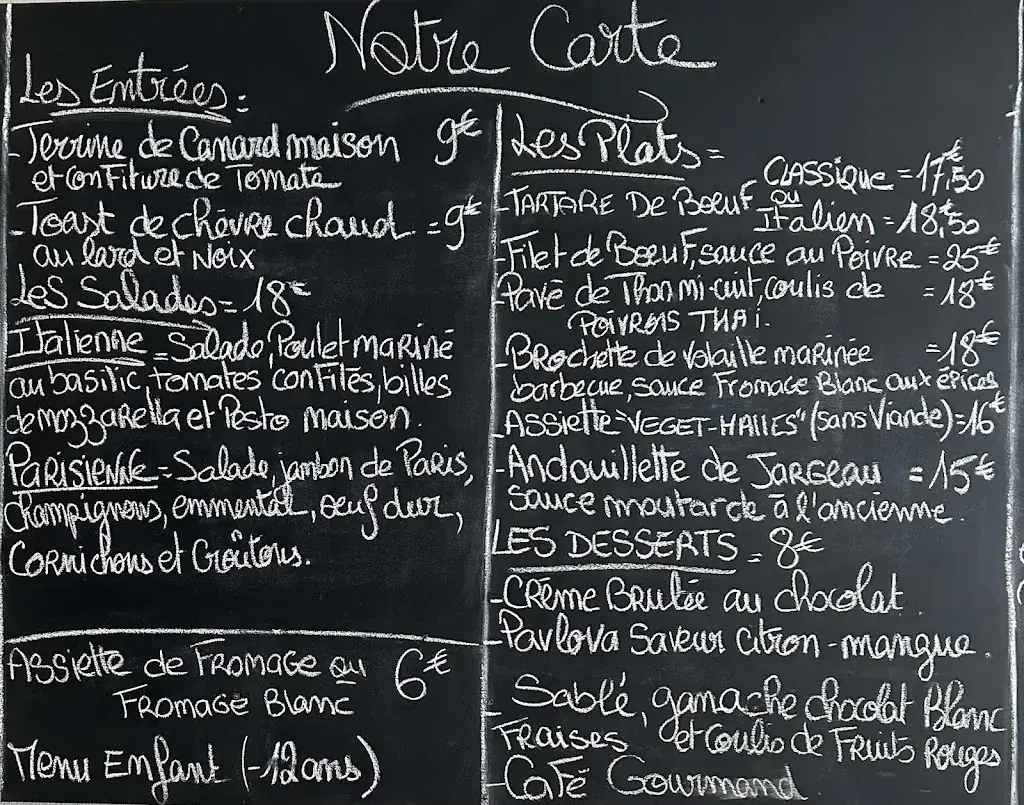 Notre Carte
Les Entrées :
- Terrine de Canard maison 9€
et confiture de Tomate
- Toast de chèvre chaud = 9€
au lard et Noix
Les Salades = 18€
Italienne = Salade, Poulet mariné
au basilic, tomates confites, billes
de mozzarella et Pesto maison.
PARISIENNE = Salade, jambon de Paris,
Champignons, emmental, œuf dur,
Cornichons et Croûtons.
Assiette de Fromage ou 6€
Fromage Blanc
Menu Enfant (-12ans)
Les Plats =
CLASSIQUE = 17,50€
- TARTARE DE BOEUF ou
Italien = 18,50
- Filet de Boeuf, sauce au Poivre = 25€
- Pavé de Thon mi-cuit, coulis de = 18€
POIVRONS THAI.
- Brochette de volaille marinée = 18€
barbecue, sauce Fromage Blanc aux épices
- Assiette "VEGET-HALLES" (sans Viande) = 16€
- Andouillette de Jargeau = 15€
sauce moutarde à l'ancienne.
LES DESSERTS = 8€
- Crème Brulée au chocolat.
- Pavlova Saveur citron-mangue.
- Sablé, ganache chocolat Blanc
Fraises et Coulis de Fruits Rouges
- Café Gourmand.